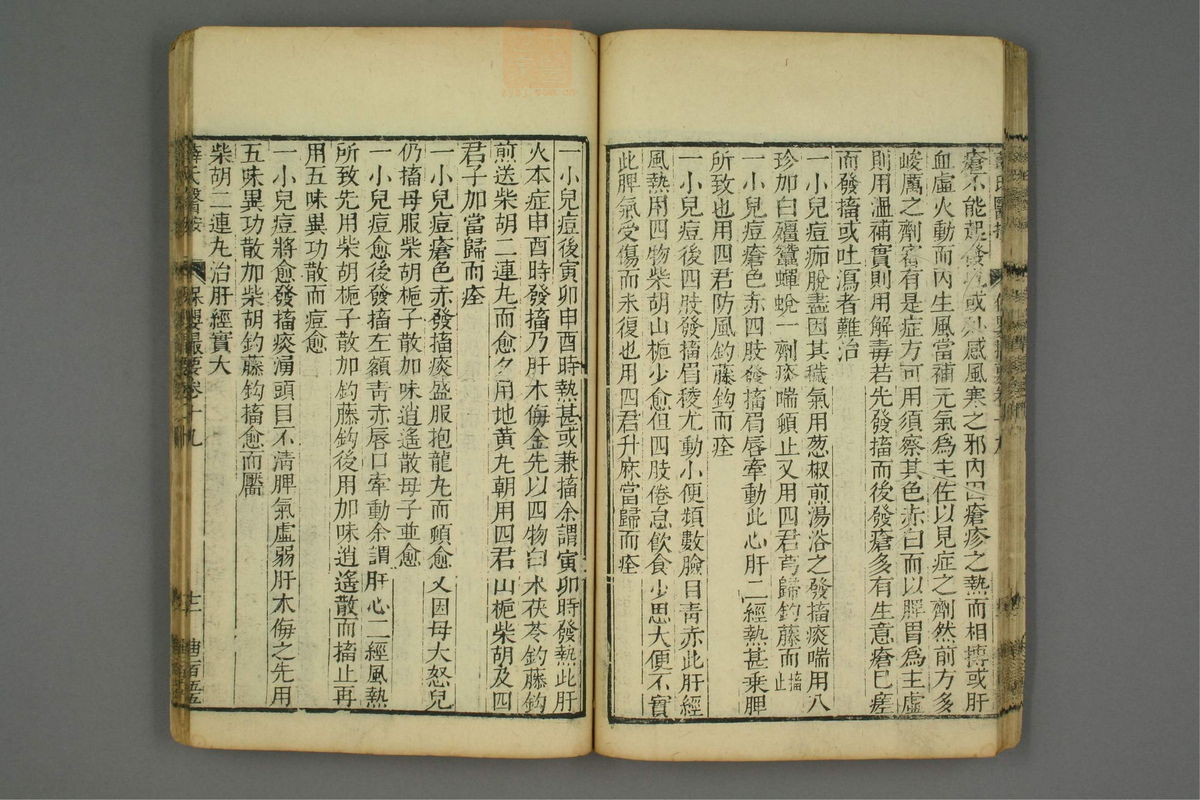 瘡不能起發或外感風寒之邪內因瘡疹之熱而相搏或肝
血虛火動而內生風當補元氣為主佐以見症之劑然前方多
峻厲之劑審有是症方可用須察其色赤白而以脾胃為主虛
則用溫補實則用解毒若先發搐而後發瘡多有生意瘡已瘥
而發搐或吐瀉者難治
一小兒痘痂脫盡因其穢氣用葱椒煎湯浴之發搐痰喘用八
珍加白殭蠶蟬蛻一劑痰喘頓止又用四君芎歸釣藤而搐止
一小兒痘瘡色赤四肢發搐眉唇牽動此心肝二經熱甚乘脾
所致也用四君防風釣藤鈎而痊
一小兒痘後四肢發搐眉稜尤動小便頻數臉目青赤此肝經
風熱用四物柴胡山梔少愈但四肢倦怠飲食少思大便不實
此脾氣受傷而未復也用四君升麻當歸而痊
一小兒痘後寅卯申酉時熱甚或兼搐余謂寅卯時發熱此肝
火本症申酉時發搐乃肝木侮金先以四物白朮茯苓釣藤鈎
煎送柴胡二連丸而愈夕用地黄丸朝用四君山梔柴胡及四
君子加當歸而痊
一小兒痘瘡色赤發搐痰盛服抱龍丸而頓愈又因母大怒兒
仍搐母服柴胡梔子散加味逍遙散母子並愈
一小兒痘愈後發搐左額青赤唇口牽動余謂肝心二經風熱
所致先用柴胡梔子散加鈎藤鈎後用加味逍遙散而搐止再
用五味異功散而痘愈
一小兒痘將愈發搐痰涌頭目不清脾氣虛弱肝木侮之先用
五味異功散加柴胡釣藤鈎搐愈而靨
柴胡二連丸治肝經實火
薛氏醫按 保嬰撮要卷十九 十二